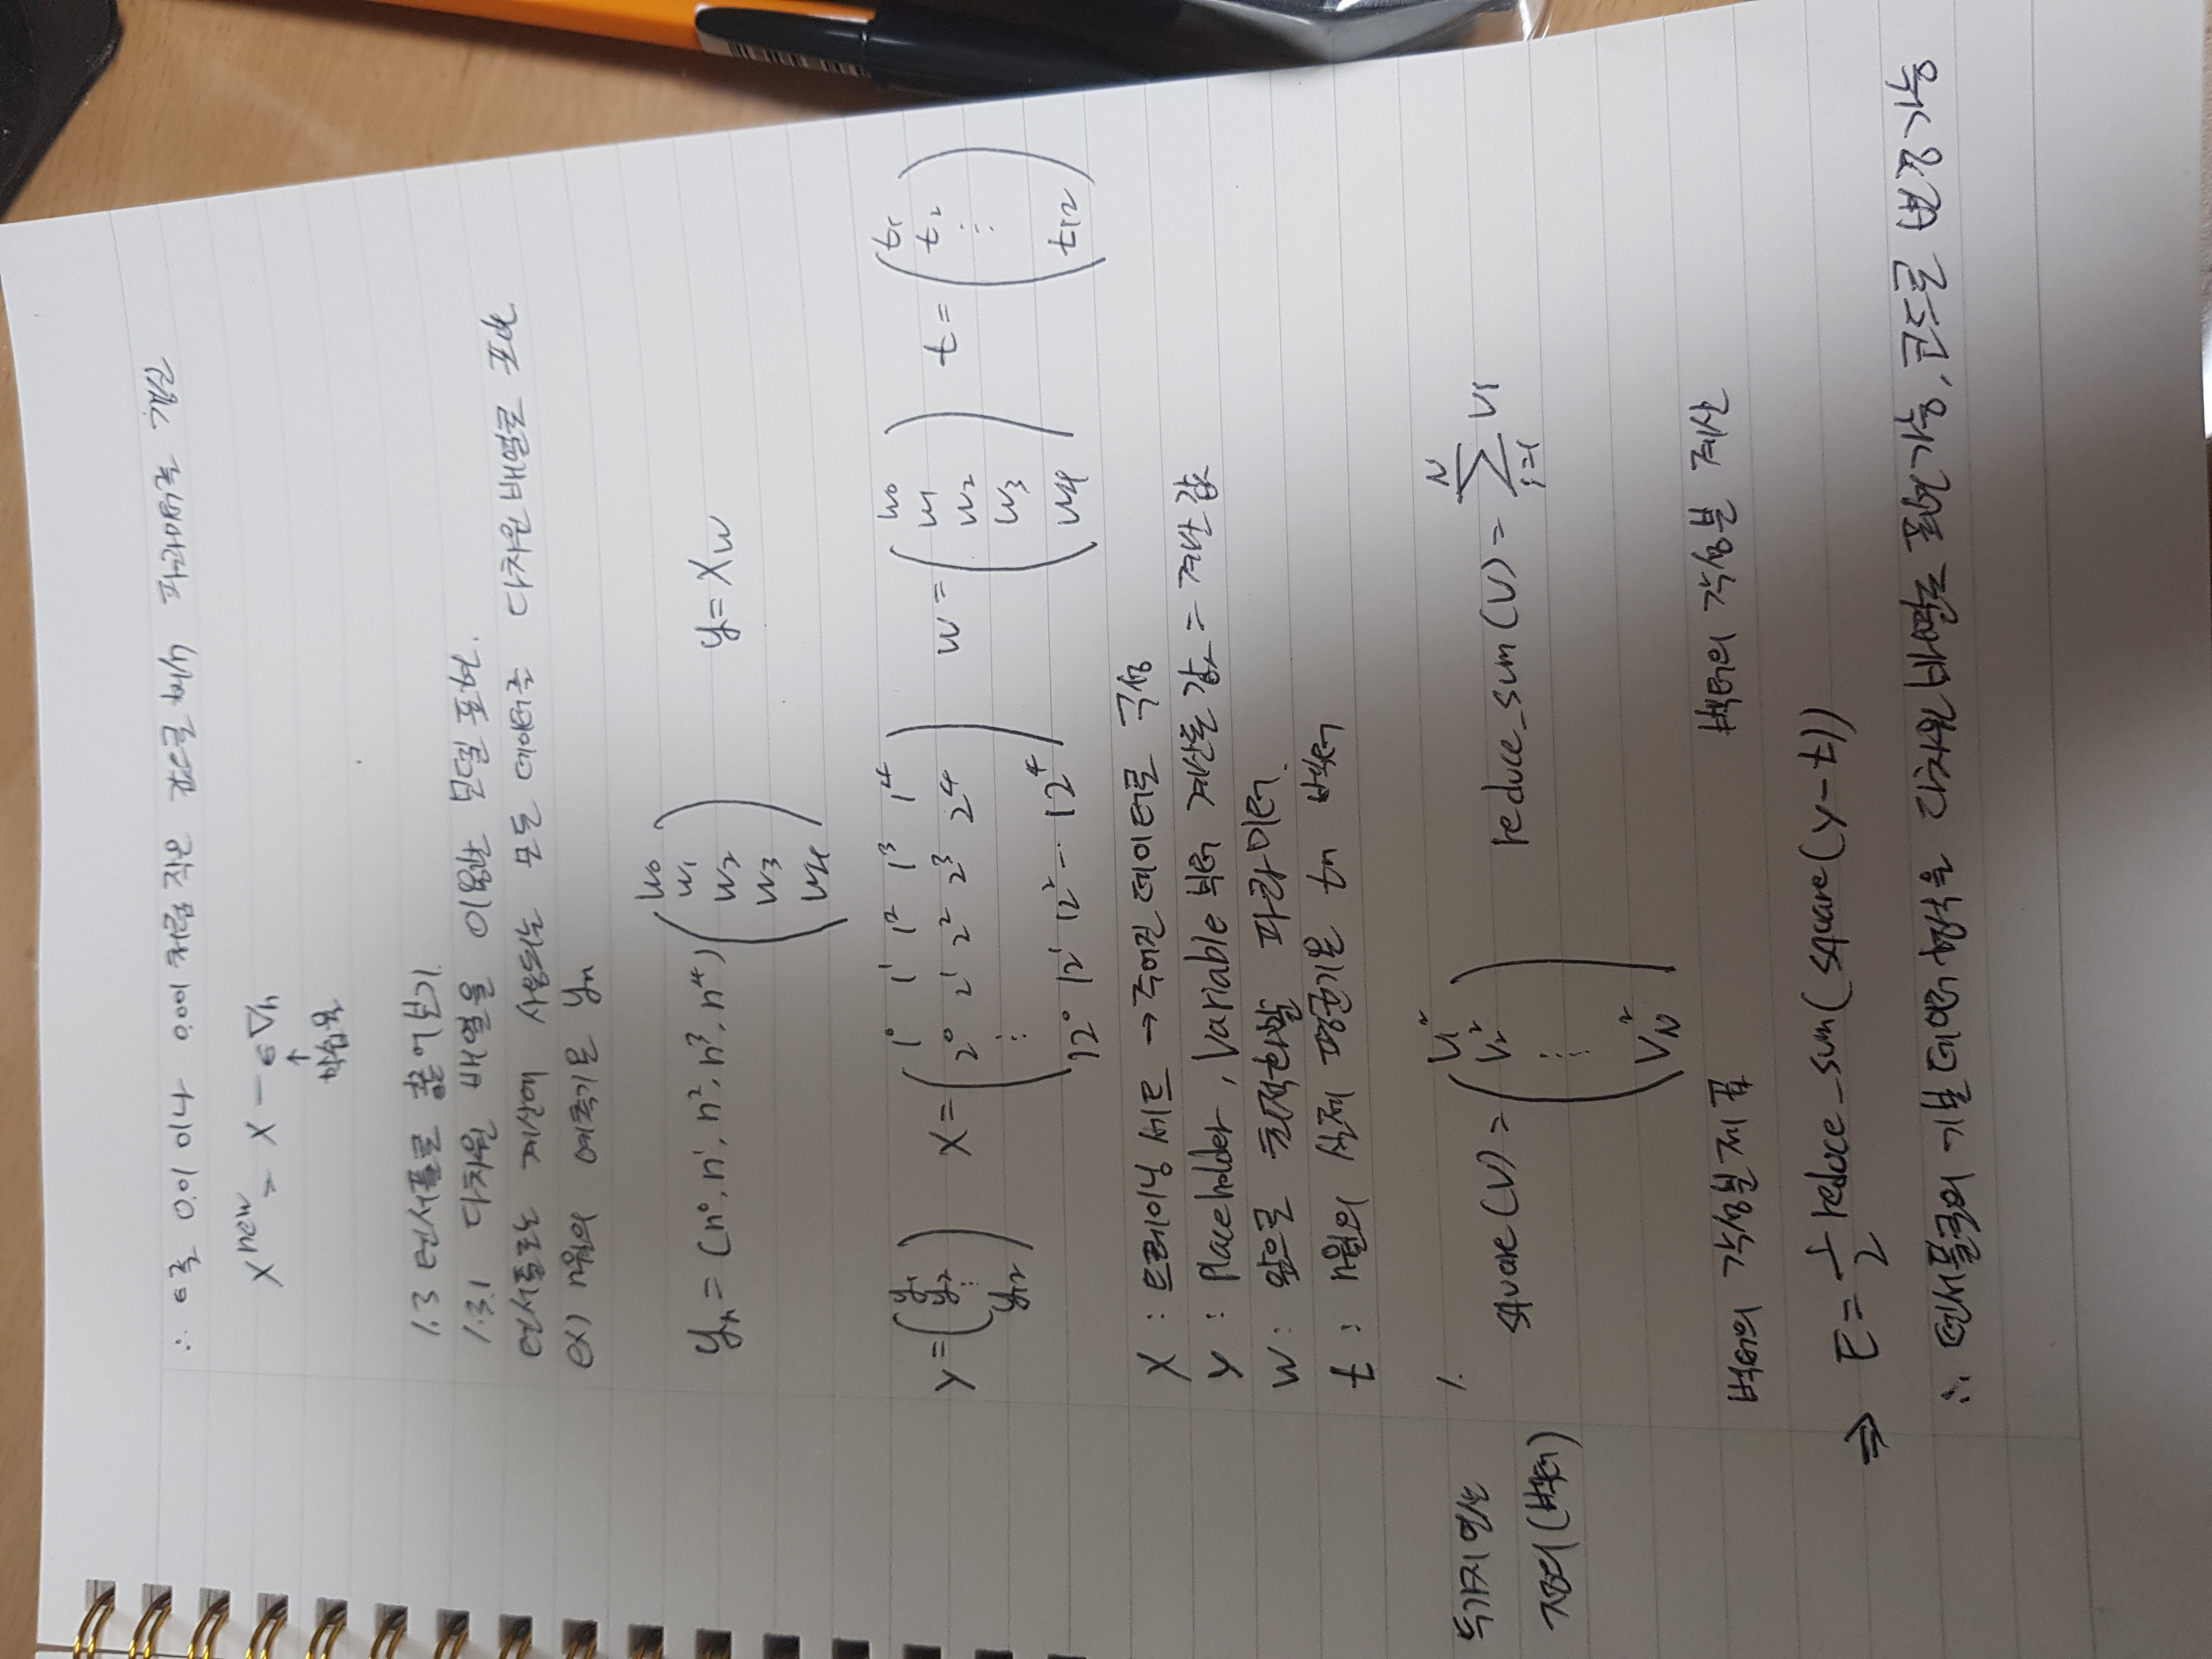 ∴ ϵ를 0.01 이나 0.001 처럼 작은 값으로 해서 파라미터를 갱신
x^new = x - ϵ∇h
↑
학습율
1.3 텐서플로 훑어보기
1.3.1 다차원 배열을 이용한 모델 표현.
텐서플로는 계산에 사용되는 모든 데이터를 다차원 배열로 표현
ex) n월의 예측기온 yn
yn = (n⁰, n¹, n², n³, n⁴) (w0 w1 w2 w3 w4) y = Xw
y = (y1 y2 ⋮ y12) X = (1⁰ 1¹ 1² 1³ 1⁴
2⁰ 2¹ 2² 2³ 2⁴
⋮
12⁰ 12¹ 12² ... 12⁴) w = (w0 w1 w2 w3 w4) t = (t1 t2 ⋮ t12)
X : 트레이닝 세트 → 주어진 데이터로 구성
y : Placeholder, Variable 부터 계산된 값 = 계산 값
w : 앞으로 최적화할 파라미터.
t : n월의 실제 평균기온 tn 벡터
두가지 연산
정의 (벡터)
1.
square(v) = (v1² v2² ⋮ vN²) reduce_sum(v) = Σ_{i=1}^{N} vi
벡터의 각성분 제곱 벡터의 각성분 계산
⇒ E = 1/2 reduce_sum(square(y-t))
∴ 텐서플로의 기본 데이터 형식을 다차원 배열로 표현가능, 코드로 변경가능